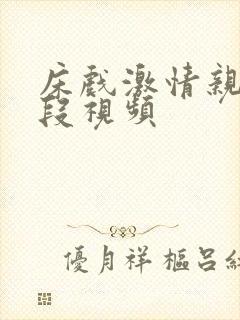 床戲激情親
段視頻
優月祥樞呂紅